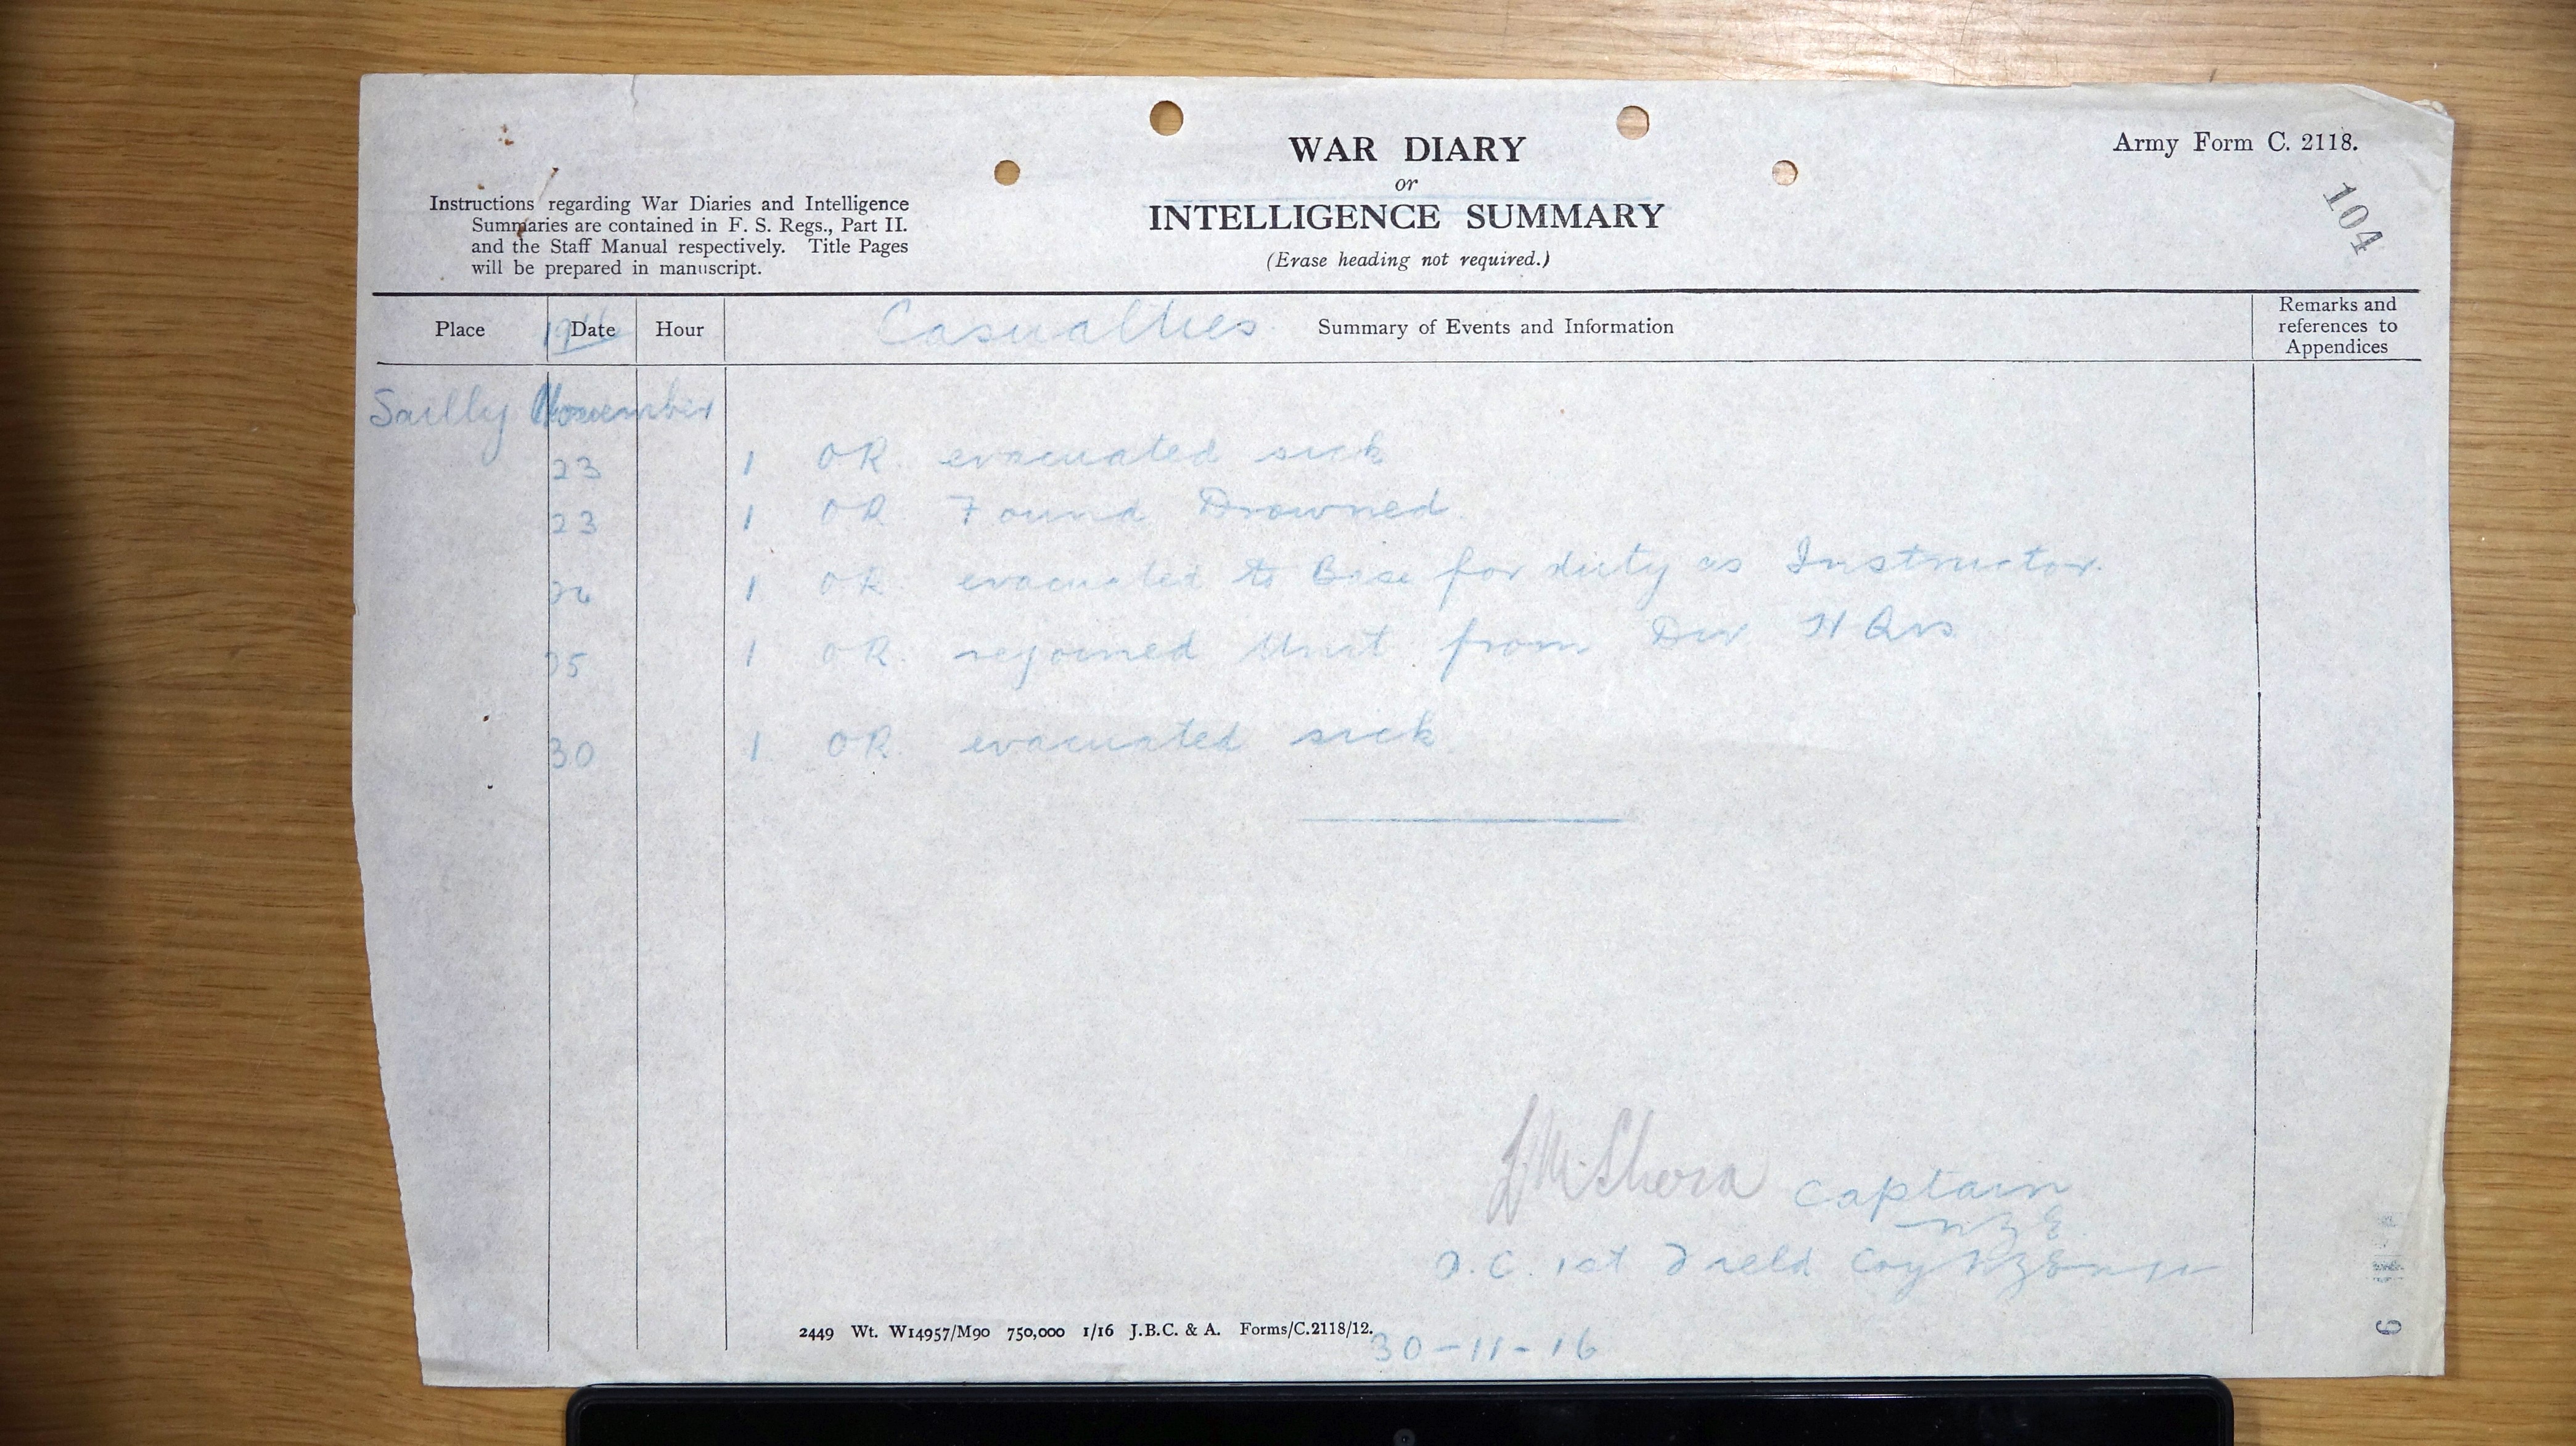 WAR DIARY
or
INTELLIGENCE SUMMARY
(Erase heading not required.)
Army Form C. 2118.
104
Instructions regarding War Diaries and Intelligence
Summaries are contained in F. S. Regs., Part II.
and the Staff Manual respectively. Title Pages
will be prepared in manuscript.
Place 1916 Date Hour Casualties Summary of Events and Information Remarks and references to Appendices
Sailly November
23 1 OR evacuated sick
23 1 OR Found Drowned
1 OR evacuated to Base for duty as Instructor.
25 1 OR rejoined Unit from Div H Qrs
30 1 OR evacuated sick
Captain
NZE
O.C. 1st Field Coy
2449 Wt. W14957/M90 750,000 1/16 J.B.C. & A. Forms/C.2118/12.
30-11-16